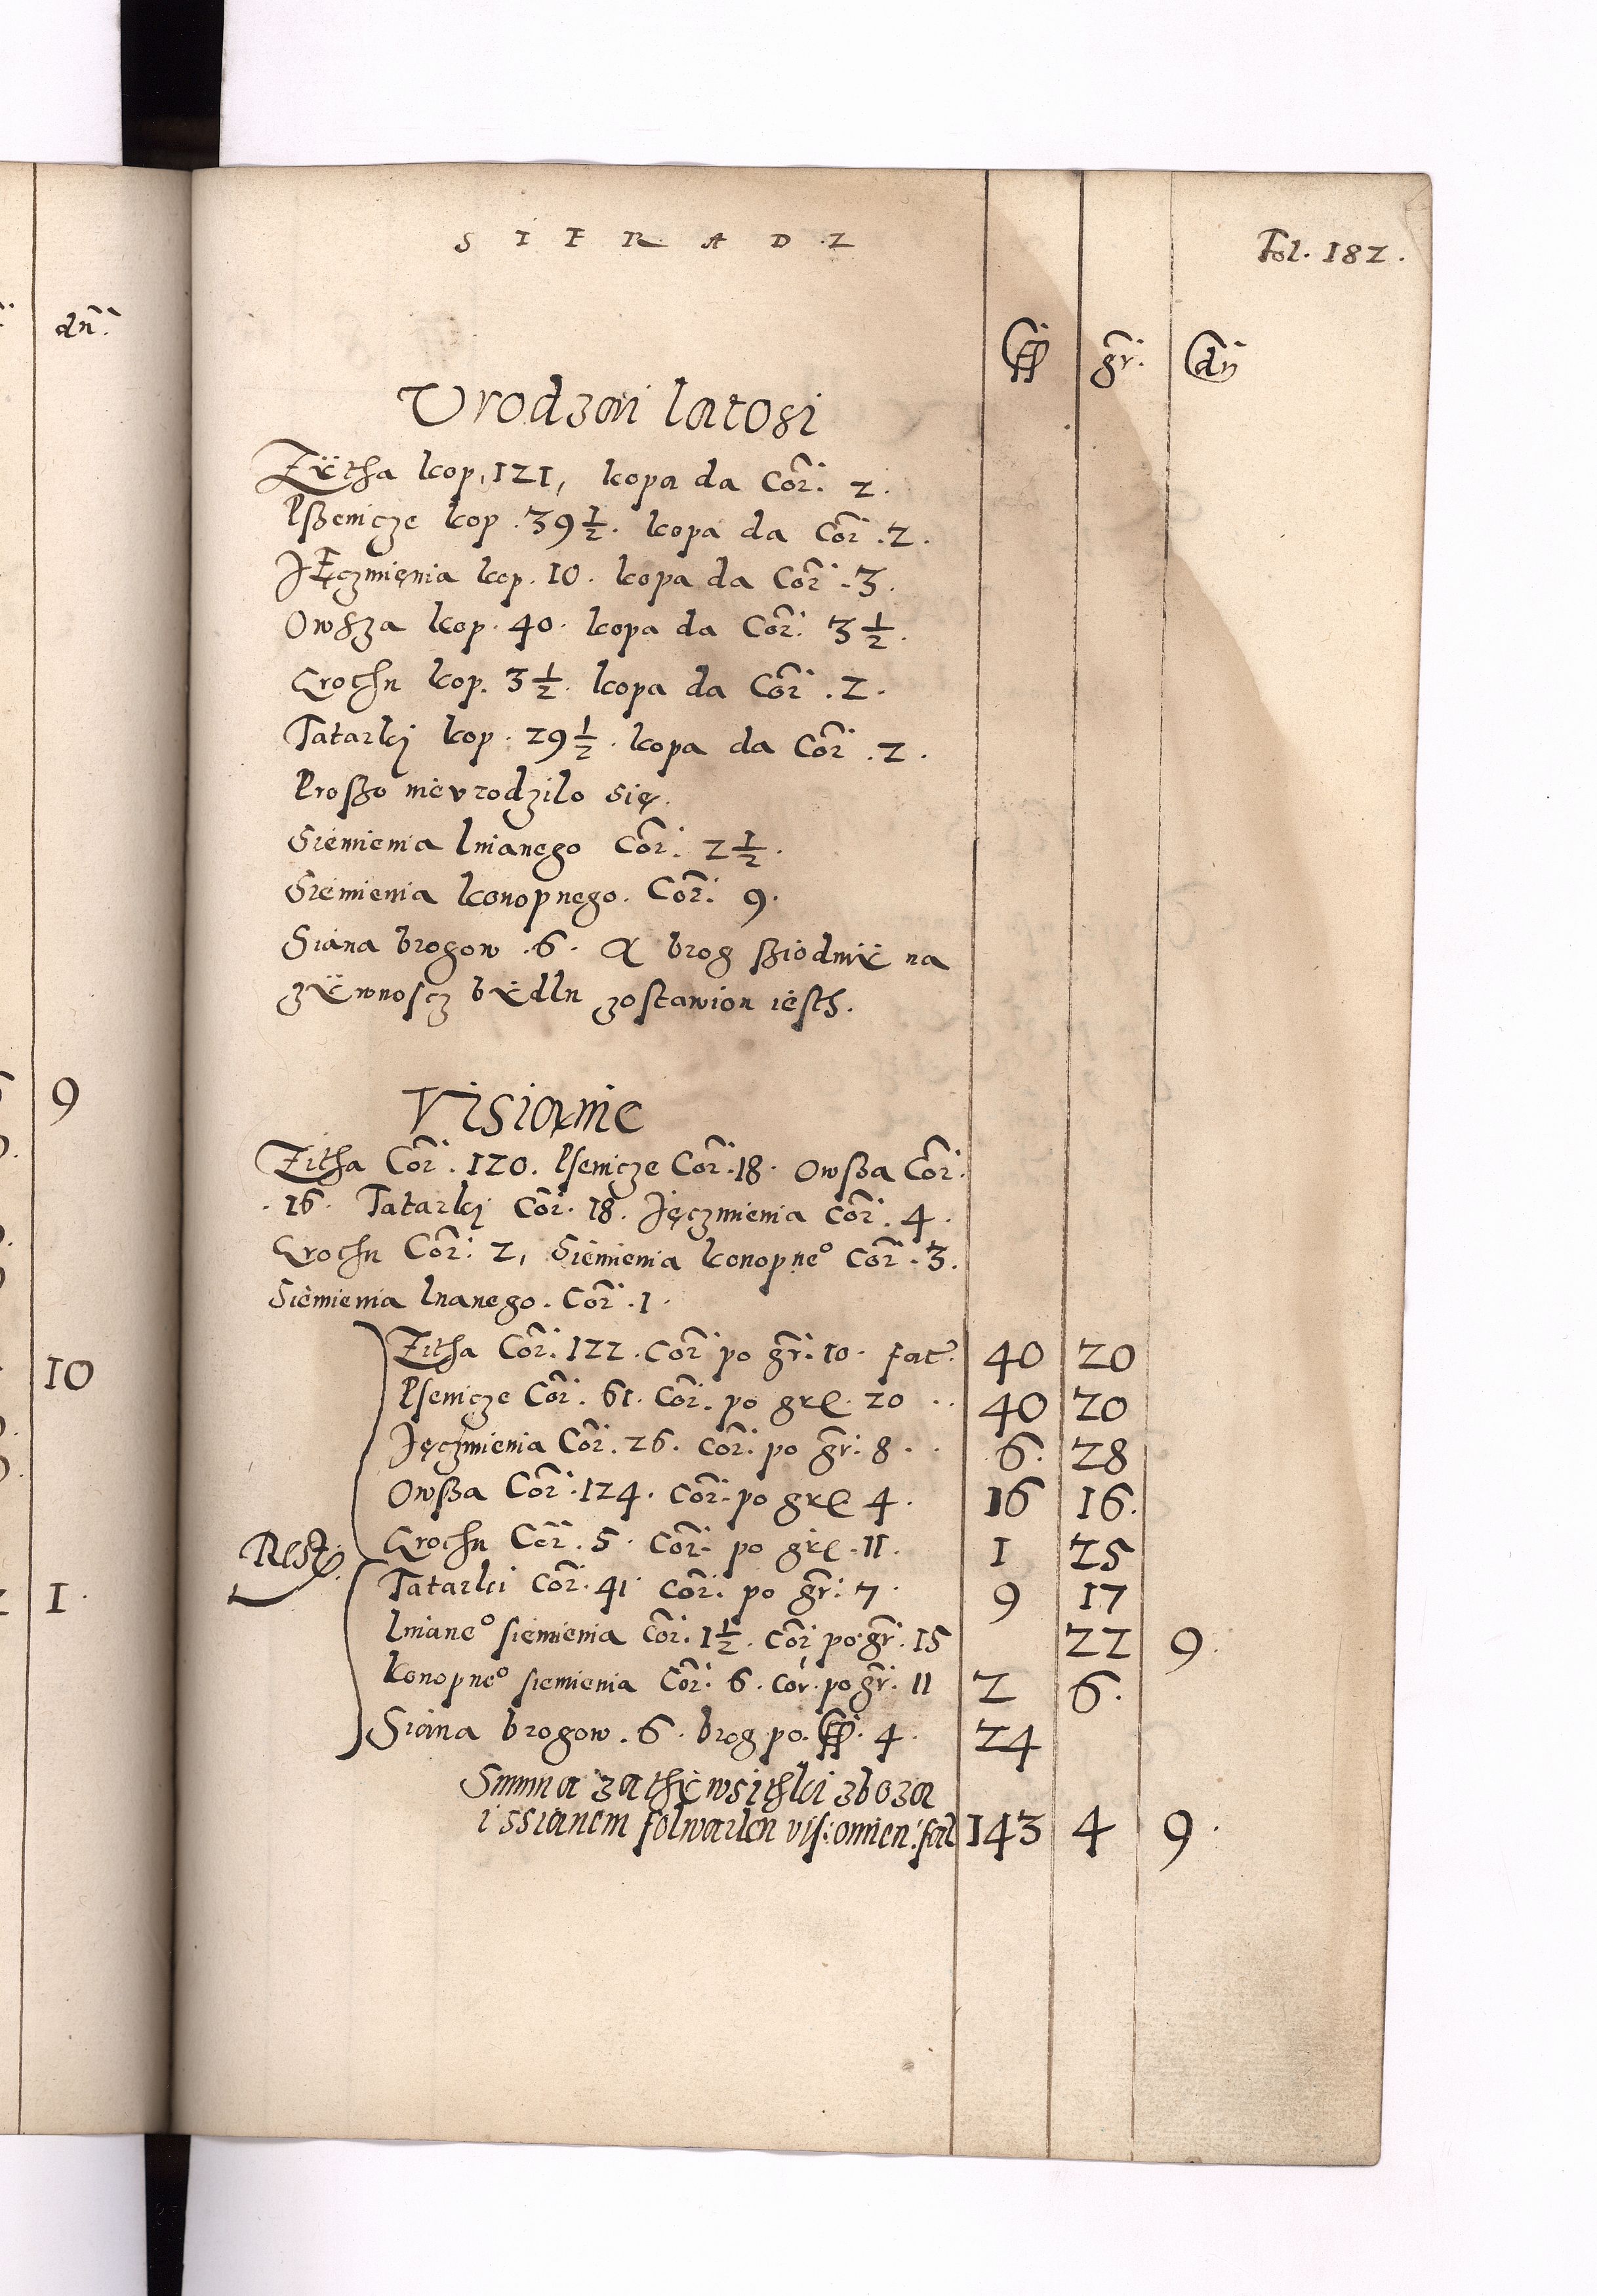 dn̄
9
10
1.
S I E R A D Z
Fol. 182.
fl gr. dn
Vrodzai latosi
Zÿtha kop. 121, kopa da Cor. 2.
Pßenicze kop. 39 1/2. kopa da Cor. 2.
JĘczmięnia kop. 10. kopa da Cor. 3.
Owsza kop. 40. kopa da Cor. 3 1/2.
Grochu kop. 3 1/2. kopa da Cor. 2.
Tatarki kop. 29 1/2. kopa da Cor. 2.
Proßo nievrodzilo się.
Siemienia lnianego Cor. 2 1/2.
Siemienia konopnego. Cor. 9.
Siana brogow .6. A brog ßiodmÿ na
zÿwnoscz bÿdlu zostawion iesth.
Visianie
Zitha Cor. 120. Psenicze Cor. 18. Owßa Cor.
.16. Tatarki Cor. 18. Jęczmienia Cor. 4.
Grochu Cor. 2, Siemienia konopneo Cor. 3.
Siemienia lnanego. Cor. 1.
Zitha Cor. 122. Cor po gr. 10. fac. 40 20
Psenicze Cor. 61. Cor. po gr. 20 .. 40 20
Jęczmienia Cor. 26. Cor. po gr. 8 .. 6. 28
Owßa Cor. 124. Cor. po gr. 4. 16 16.
Rest. Grochu Cor. 5. Cor. po gr. 11. 1 25
Tatarki Cor. 41. Cor. po gr. 7. 9 17
Lnianeo siemienia Cor. 1 1/2. Cor po gr. 15 22 9.
Konopneo siemienia Cor. 6. Cor. po gr. 11 2 6.
Siana brogow. 6. brog po. fl. 4. 24
Summa za thÿ wsithki zboza
i ssianem folwarku 143 4 9.